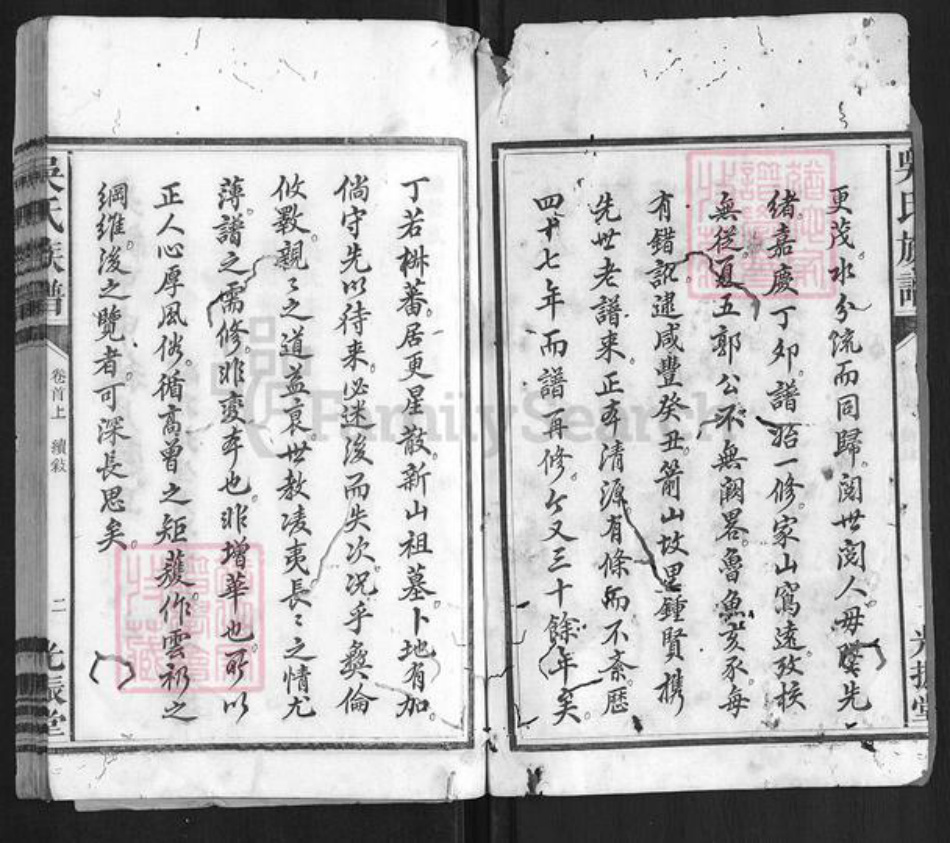 更茂。水分流而同歸。閱世閱人。毋墜先
緒。嘉慶丁卯。譜始一修。家山窵遠。攷核
無從。夏五郭公。不無闕畧。魯魚亥豕。每
有錯訛。逮咸豐癸丑。箭山故里。鍾賢携
先世老譜來。正本清源。有條而不紊。歷
四十七年而譜再修。今又三十餘年矣。
丁若椒蕃。居更星散。新山祖墓。卜地有加。
倘守先以待來。必迷後而失次。况乎彝倫
攸斁。親親之道益衰。世教凌夷。長長之情尤
薄。譜之需修。非变本也。非增華也。所以
正人心。厚風俗。循高曾之矩矱。作雲礽之
綱維。後之覽者。可深長思矣。
吳氏族譜
卷首上 續敘
二
光振堂
吳氏族譜
光振堂
FamilySearch